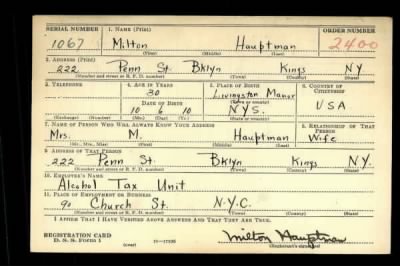 SERIAL NUMBER 1. NAME (Print) ORDER NUMBER
1067 Milton Hauptman 2400
(First) (Middle) (Last)
2. ADDRESS (Print)
222 Penn St. Bklyn Kings NY
(Number and street or R. F. D. number) (Town) (County) (State)
3. TELEPHONE 4. AGE IN YEARS 5. PLACE OF BIRTH 6. COUNTRY OF CITIZENSHIP
30 Livingston Manor
DATE OF BIRTH (Town or county)
10 6 10 N.Y.S. USA
(Exchange) (Number) (Mo.) (Day) (Yr.) (State or country)
7. NAME OF PERSON WHO WILL ALWAYS KNOW YOUR ADDRESS 8. RELATIONSHIP OF THAT PERSON
Mrs. M. Hauptman Wife
(Mr., Mrs., Miss) (First) (Middle) (Last)
9. ADDRESS OF THAT PERSON
222 Penn St. Bklyn Kings N.Y.
(Number and street or R. F. D. number) (Town) (County) (State)
10. EMPLOYER'S NAME
Alcohol Tax Unit
11. PLACE OF EMPLOYMENT OR BUSINESS
90 Church St. N.Y.C.
(Number and street or R. F. D. number) (Town) (County) (State)
I AFFIRM THAT I HAVE VERIFIED ABOVE ANSWERS AND THAT THEY ARE TRUE.
REGISTRATION CARD
D. S. S. Form 1 (over) Milton Hauptman
(Registrant's signature)